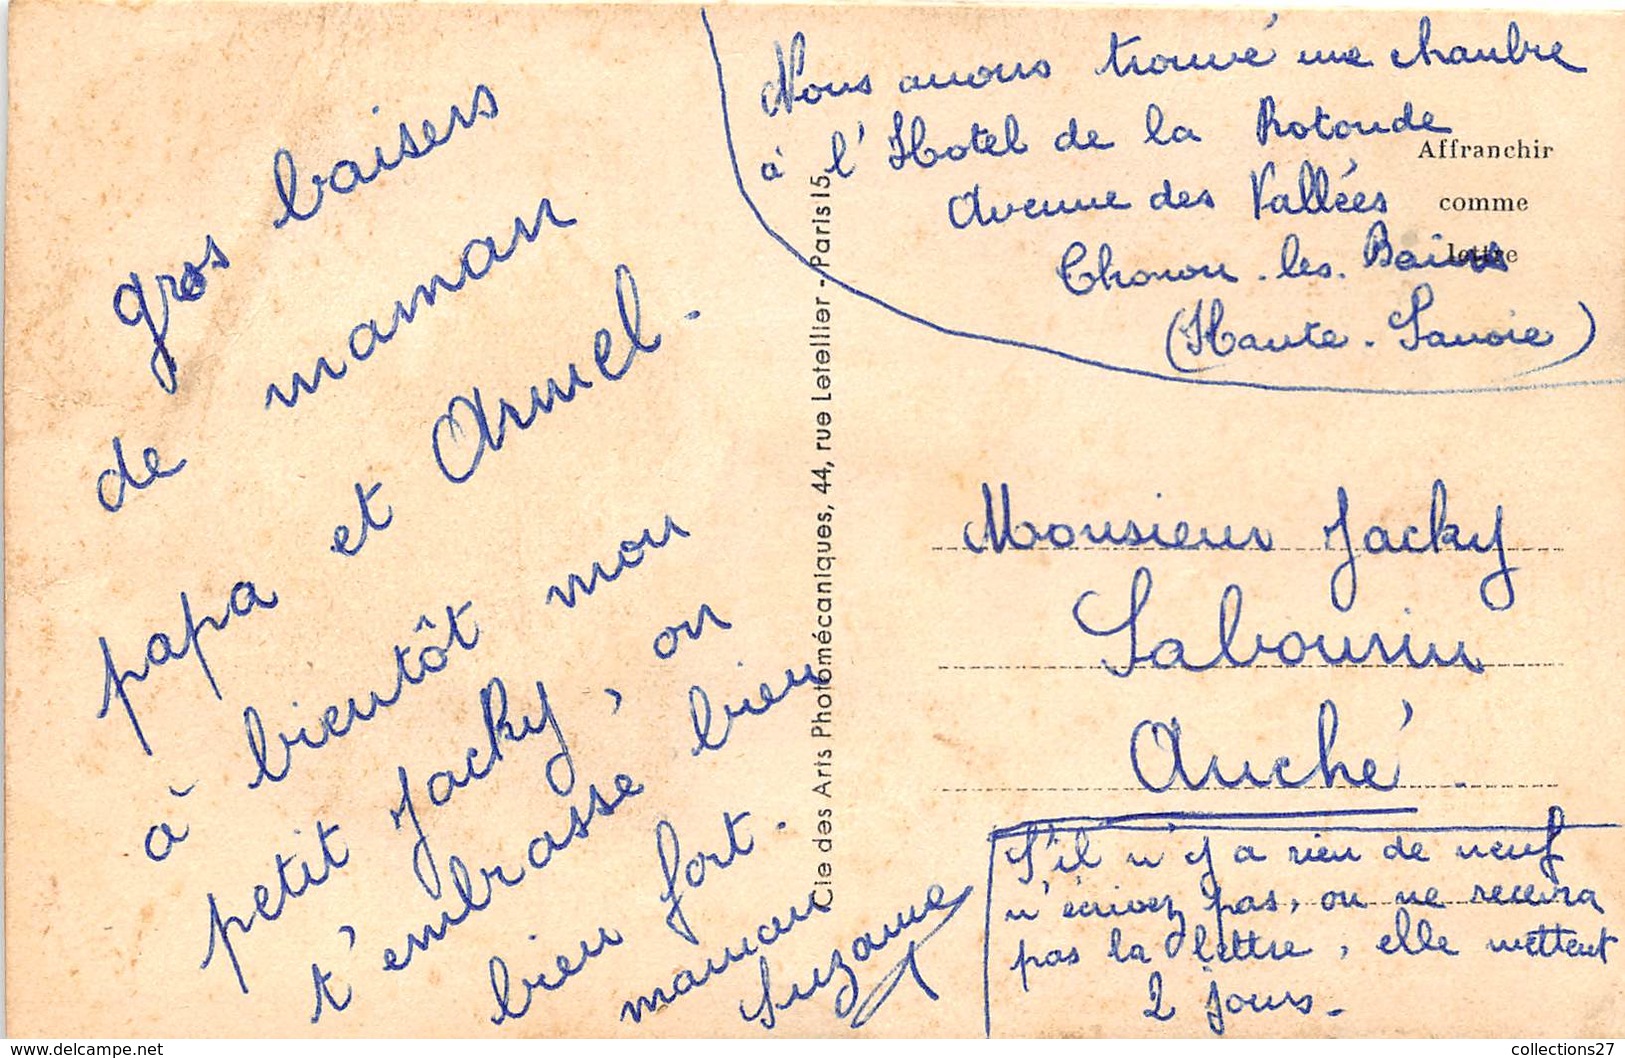 gros baisers
de maman
papa et Armel.
à bientôt mon
petit Jacky, on
t'embrasse bien
bien fort.
maman
Suzanne
Cie des Arts Photomécaniques, 44, rue Letellier - Paris 15
Nous avons trouvé une chambre
à l'Hotel de la Rotonde
Avenue des Vallées
Thonon-les-Bains
(Haute-Savoie)
Affranchir
comme
lettre
Monsieur Jacky
Sabourin
Auché.
S'il n'y a rien de neuf
n'écrivez pas, on ne recevra
pas la lettre, elle mettent
2 jours.
collections27